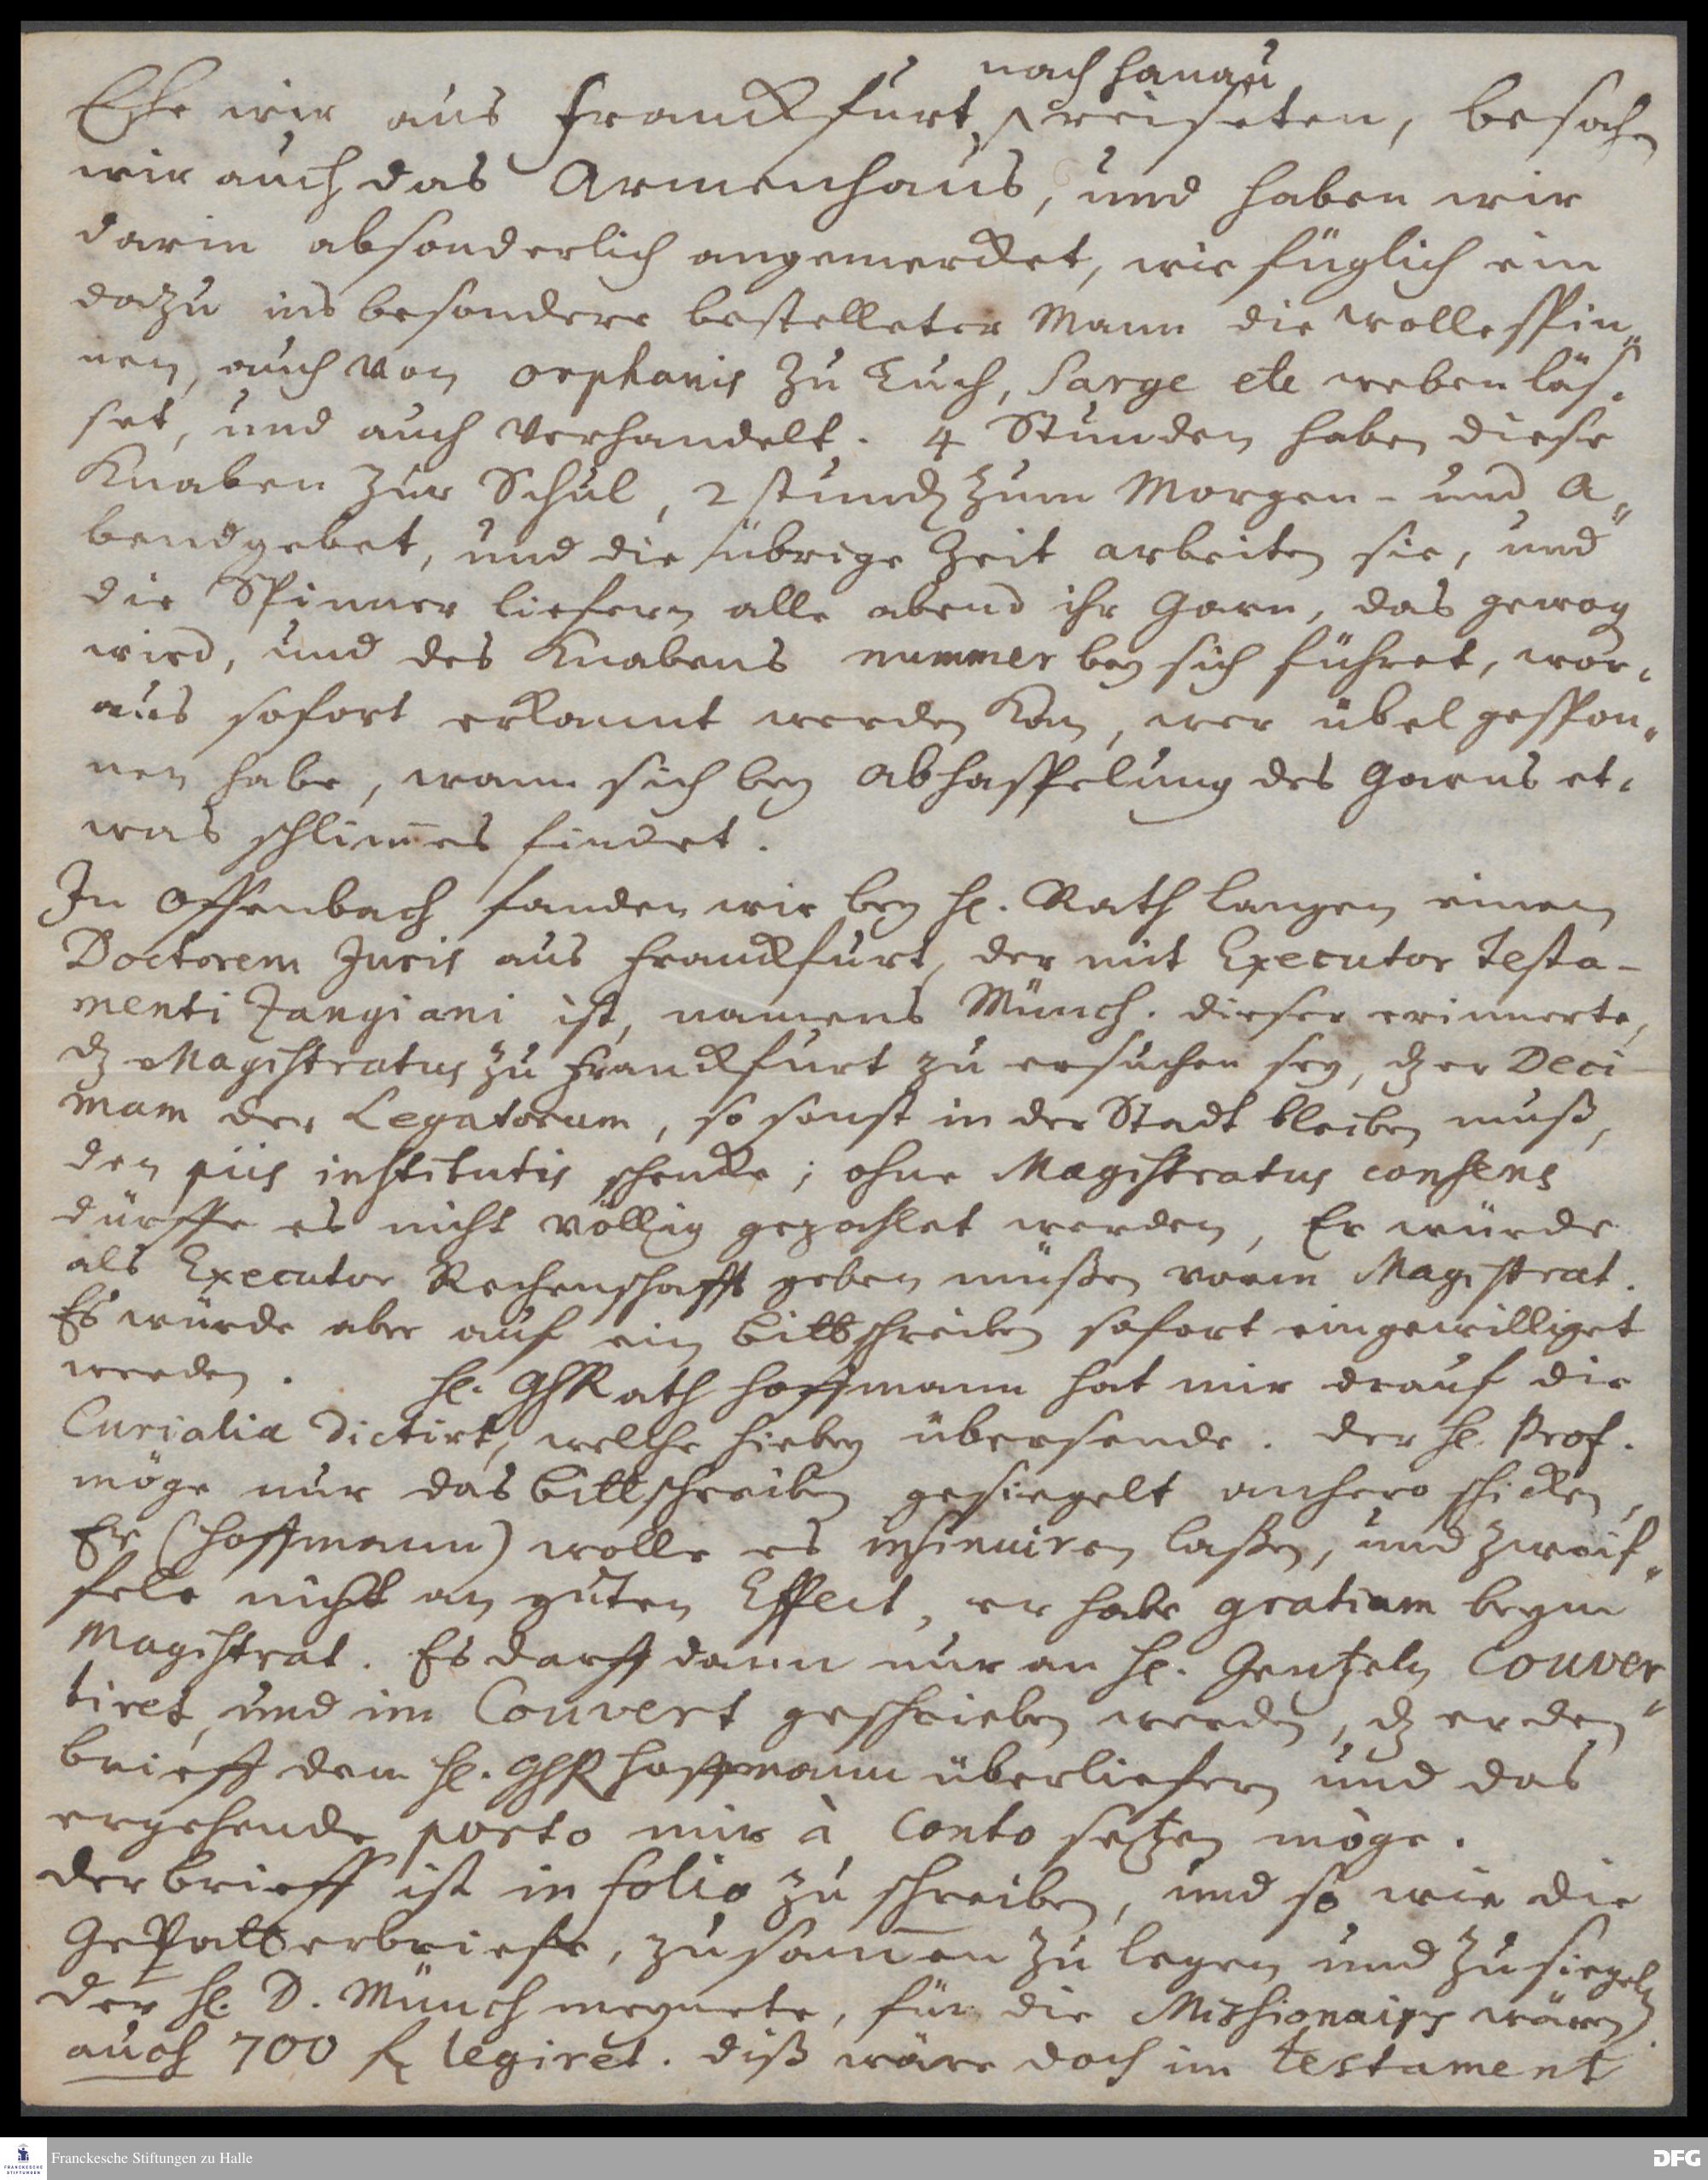 nach Hanau
Ehe wir aus Franckfurt reiseten, besahen
wir auch das Armenhaus, und haben wir
darin absonderlich angemercket, wie füglich ein
dazu ins besondere bestelleter Mann die Wolle spin„
nen, auch von orphanis zu Tuch, Sarge etc weben läs„
set, und auch verhandelt. 4 Stunden haben diese
Knaben zur Schul, 2 stund zum Morgen- und A„
bendgebet, und die übrige Zeit arbeiten sie, und
die Spinner liefern alle abend ihr Garn, das gewog
wird, und des Knabens nummer bey sich führet, wor„
aus sofort erkannt werden kan, wer übel gespon„
nen habe, wann sich bey Abhaspelung des Garns et„
was schlim̄es findet.
In Offenbach fanden wir bey H. Rath Langen einen
Doctorem Juris aus Franckfurt, der mit Executor Testa-
menti Zangiani ist, namens Münch. dieser erinnerte,
dz Magistratus zu Franckfurt zu ersuchen sey, dz er Deci-
mam der Legatorum, so sonst in der Stadt bleiben muß,
den piis institutis schencke; ohne Magistratus consens
dürffe es nicht völlig gezahlet werden, Er würde
als Executor Rechenschafft geben müßen vorm Magistrat.
Es würde aber auf ein Bittschreiben sofort eingewilliget
werden. H. GhRath Hoffmann hat mir drauf die
Curialia dictirt, welche hiebey übersende. der H. Prof.
möge nur das Bittschreiben gesiegelt anhero schicken,
Er (Hoffmann) wolle es insinuiren laßen, und zweif„
fele nicht an guten Effect, er habe gratiam beym
Magistrat. Es darff dann nur an H. Gentzeln Couver„
tiret, und im Couvert geschrieben werden, dz er den
brieff dem H. GhR Hoffmann überliefern und das
ergehende porto mir à Conto setzen möge.
der brieff ist in folio zu schreiben, und so wie die
Gevatterbriefe, zusam̄en zu legen und zu siegeln
Der H. D. Münch meynete, für die Missionairs wären
auch 700 fl legiret. diß wäre doch im Testament
Franckesche Stiftungen zu Halle
FRANCKESCHE
STIFTUNGEN
DFG